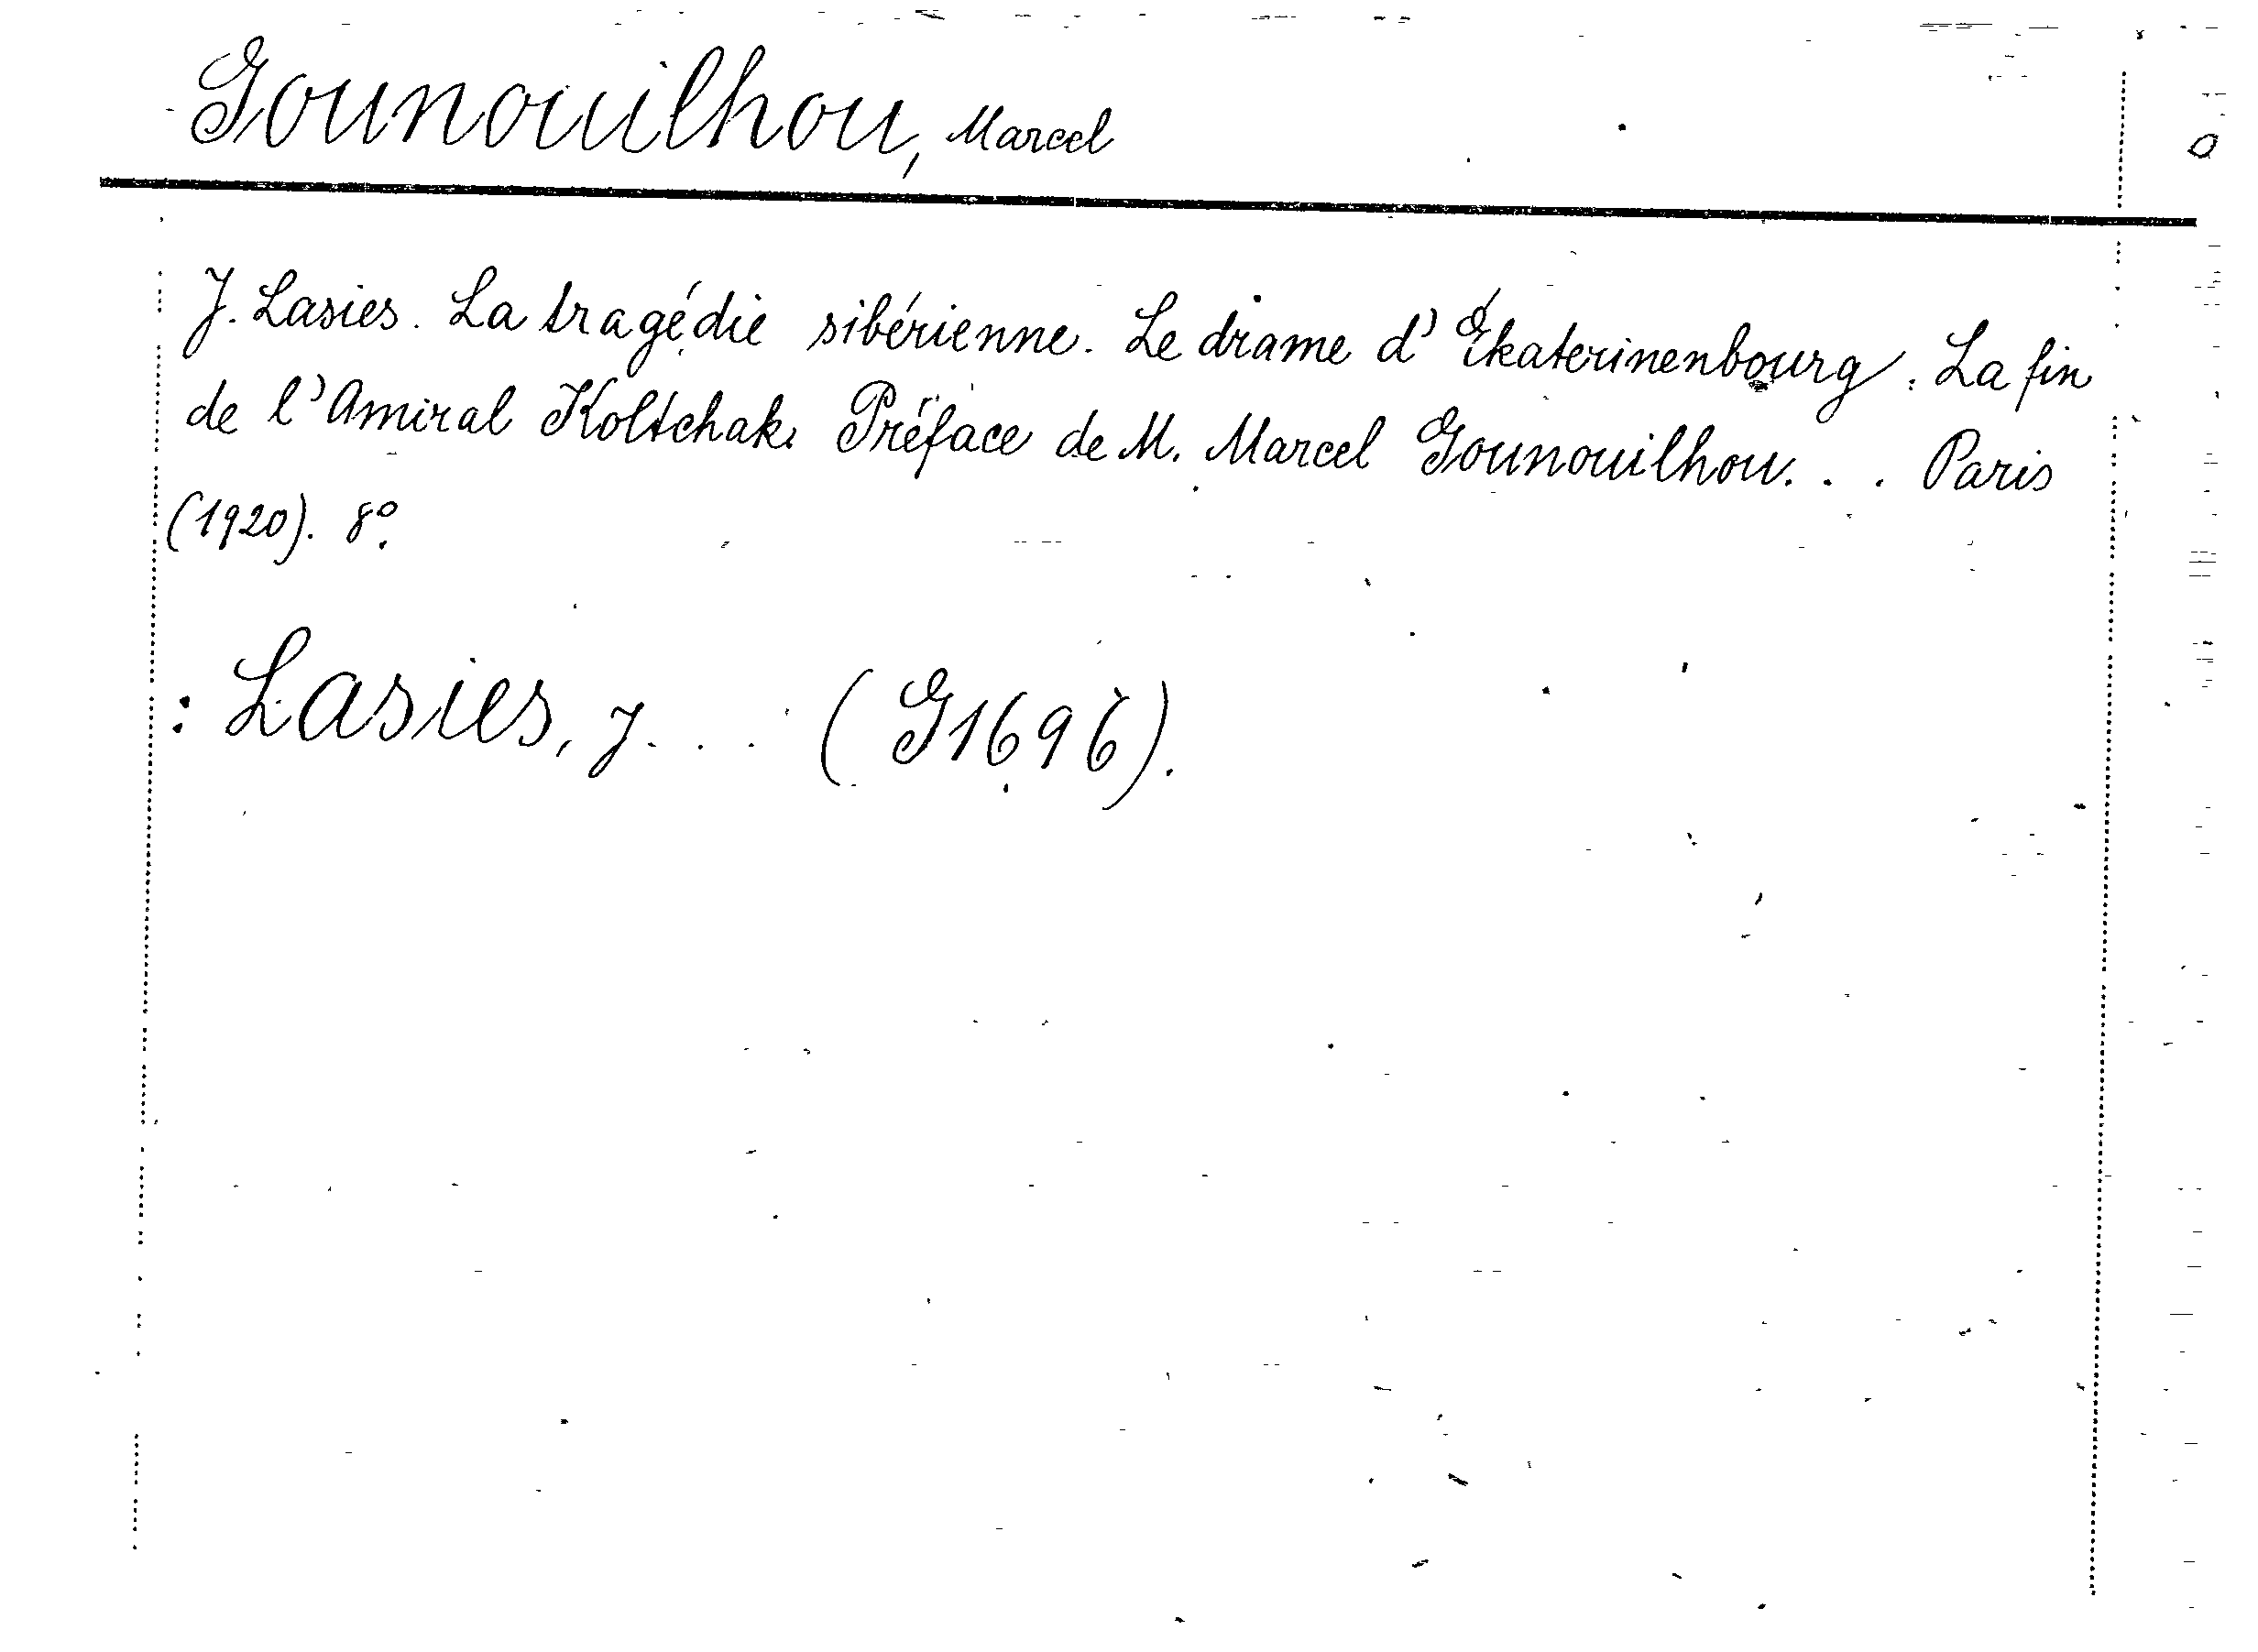 Gounouilhou, Marcel
J. Lasies. La tragédie sibérienne. Le drame d'Ékaterinenbourg. La fin
de l'Amiral Koltchak. Préface de M. Marcel Gounouilhou... Paris
(1920). 8º.
: Lasies, J... (G1696).